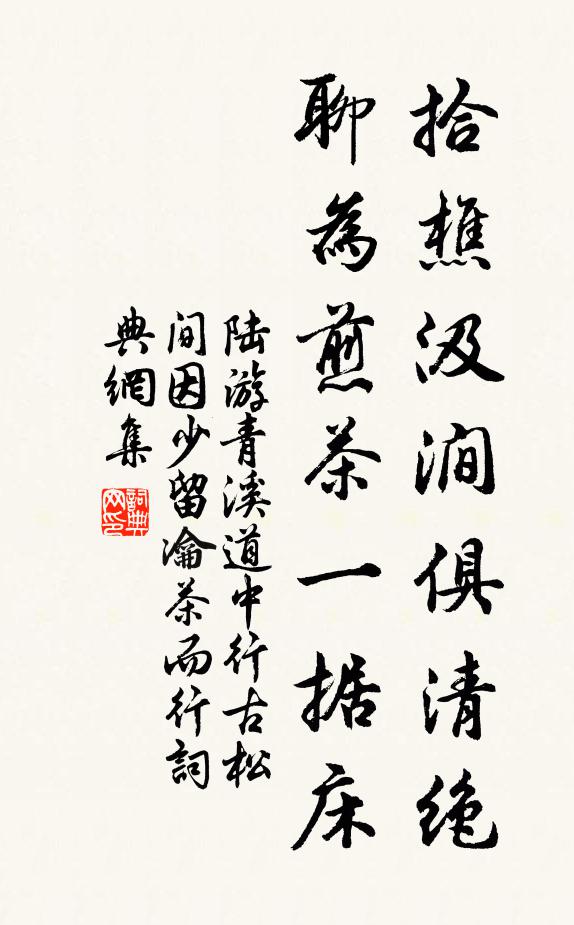 拾樵汲涧俱清绝
聊為煎茶一据床
陆游青溪道中行古松
间因少留瀹茶而行詞
典網集
詞典网印